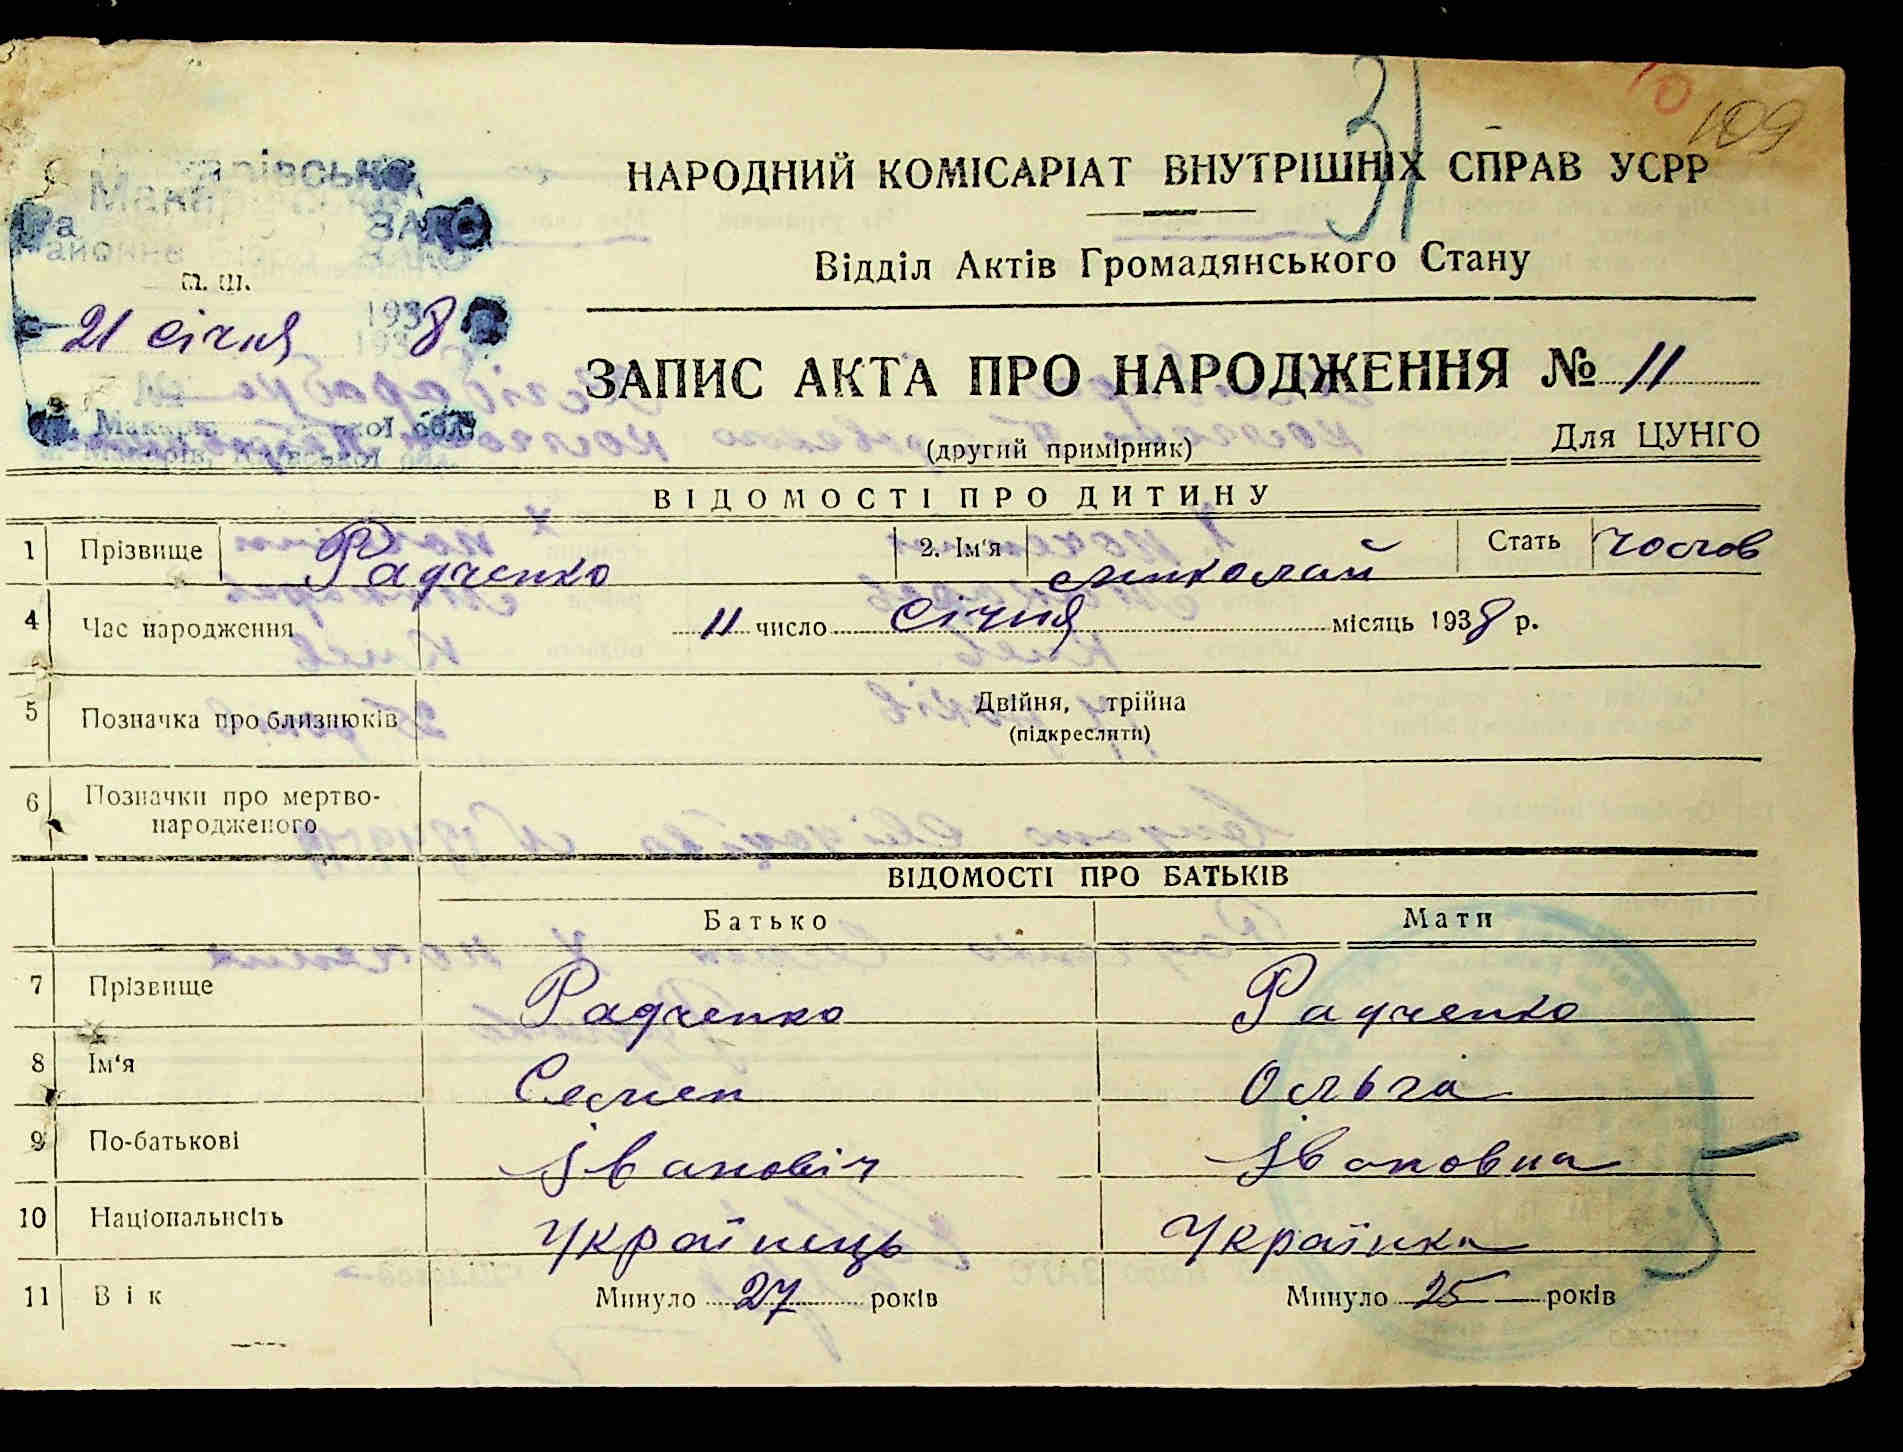 31
10
109
НАРОДНИЙ КОМІСАРІАТ ВНУТРІШНІХ СПРАВ УСРР
Відділ Актів Громадянського Стану
ЗАКС
21 січня 1938
ЗАПИС АКТА ПРО НАРОДЖЕННЯ № 11
(другий примірник)
Для ЦУНГО
ВІДОМОСТІ ПРО ДИТИНУ
1 Прізвище Радченко 2. Ім'я Николай Стать чолов
4 Час народження 11 число січня місяць 1938 р.
5 Позначка про близнюків Двійня, трійна
(підкреслити)
6 Позначки про мертво-
народженого
ВІДОМОСТІ ПРО БАТЬКІВ
Батько Мати
7 Прізвище Радченко Радченко
8 Ім'я Семен Ольга
9 По-батькові Івановіч Івановна
10 Національнсіть Українець Українка
11 Вік Минуло 27 років Минуло 25 років